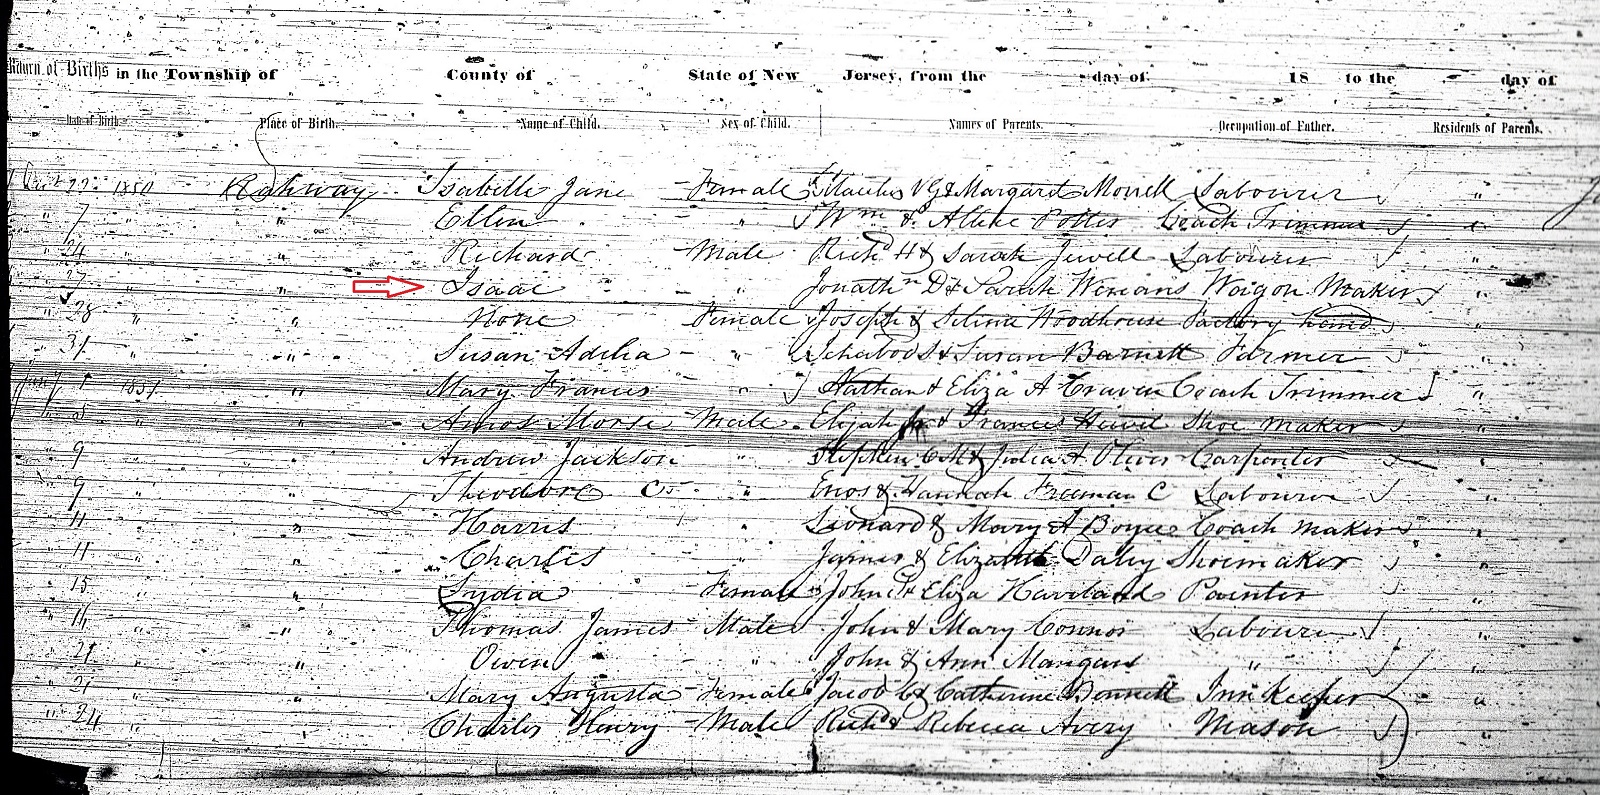 Return of Births in the Township of County of State of New Jersey, from the day of 18 to the day of
Date of Birth. Place of Birth. Name of Child. Sex of Child. Names of Parents. Occupation of Father. Residents of Parents.
22 1850 Rahway Isabella Jane Female & Margaret Labourer "
" 7 " " Ellen " Wm & Potter Coach Trimmer "
" 24 " " Richard Male Richd H & Sarah Jewell Labourer "
" 27 " " Isaac " Jonathn D & Sarah Waggon Maker "
" 28 " " None Female Joseph & Selina Woodhouse Factory "
" 31 " " Susan Adelia " & Susan Barnett Farmer "
Jany 1 1851 " Mary Frances " Nathan & Eliza A Craven Coach Trimmer "
" " Amos Morse Male Elijah & Frances Shoe maker "
" 9 " Andrew Jackson " Stephen & Julia A Oliver Carpenter "
" 9 " Theodore " Enos & Hannah Freeman C Labourer "
" 11 " Harris " Leonard & Mary A Boyce Coach maker "
" 11 " Charles " James & Elizabeth Daley Shoemaker "
" 15 " Lydia Female John & Eliza Haviland Painter "
" 16 " Thomas James Male John & Mary Connor Labourer "
" 21 " Owen " John & Ann " "
" 21 " " Mary Augusta Female Jacob & Catherine Bonnett Inn Keeper "
" 24 " " Charles Henry Male Richd & Rebecca Avery Mason "